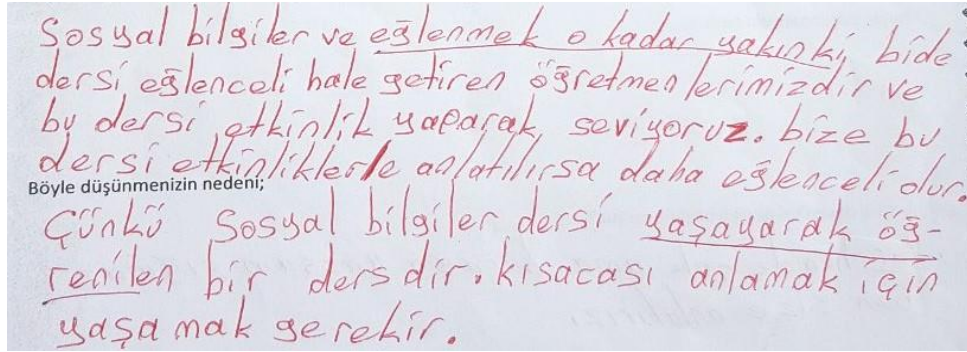 Sosyal bilgiler ve eğlenmek o kadar yakınki, bide
dersi eğlenceli hale getiren öğretmenlerimizdir ve
bu dersi etkinlik yaparak seviyoruz. bize bu
dersi etkinliklerle anlatılırsa daha eğlenceli olur.
Böyle düşünmenizin nedeni;
Çünkü Sosyal bilgiler dersi yaşayarak öğ-
renilen bir dersdir. kısacası anlamak için
yaşamak gerekir.